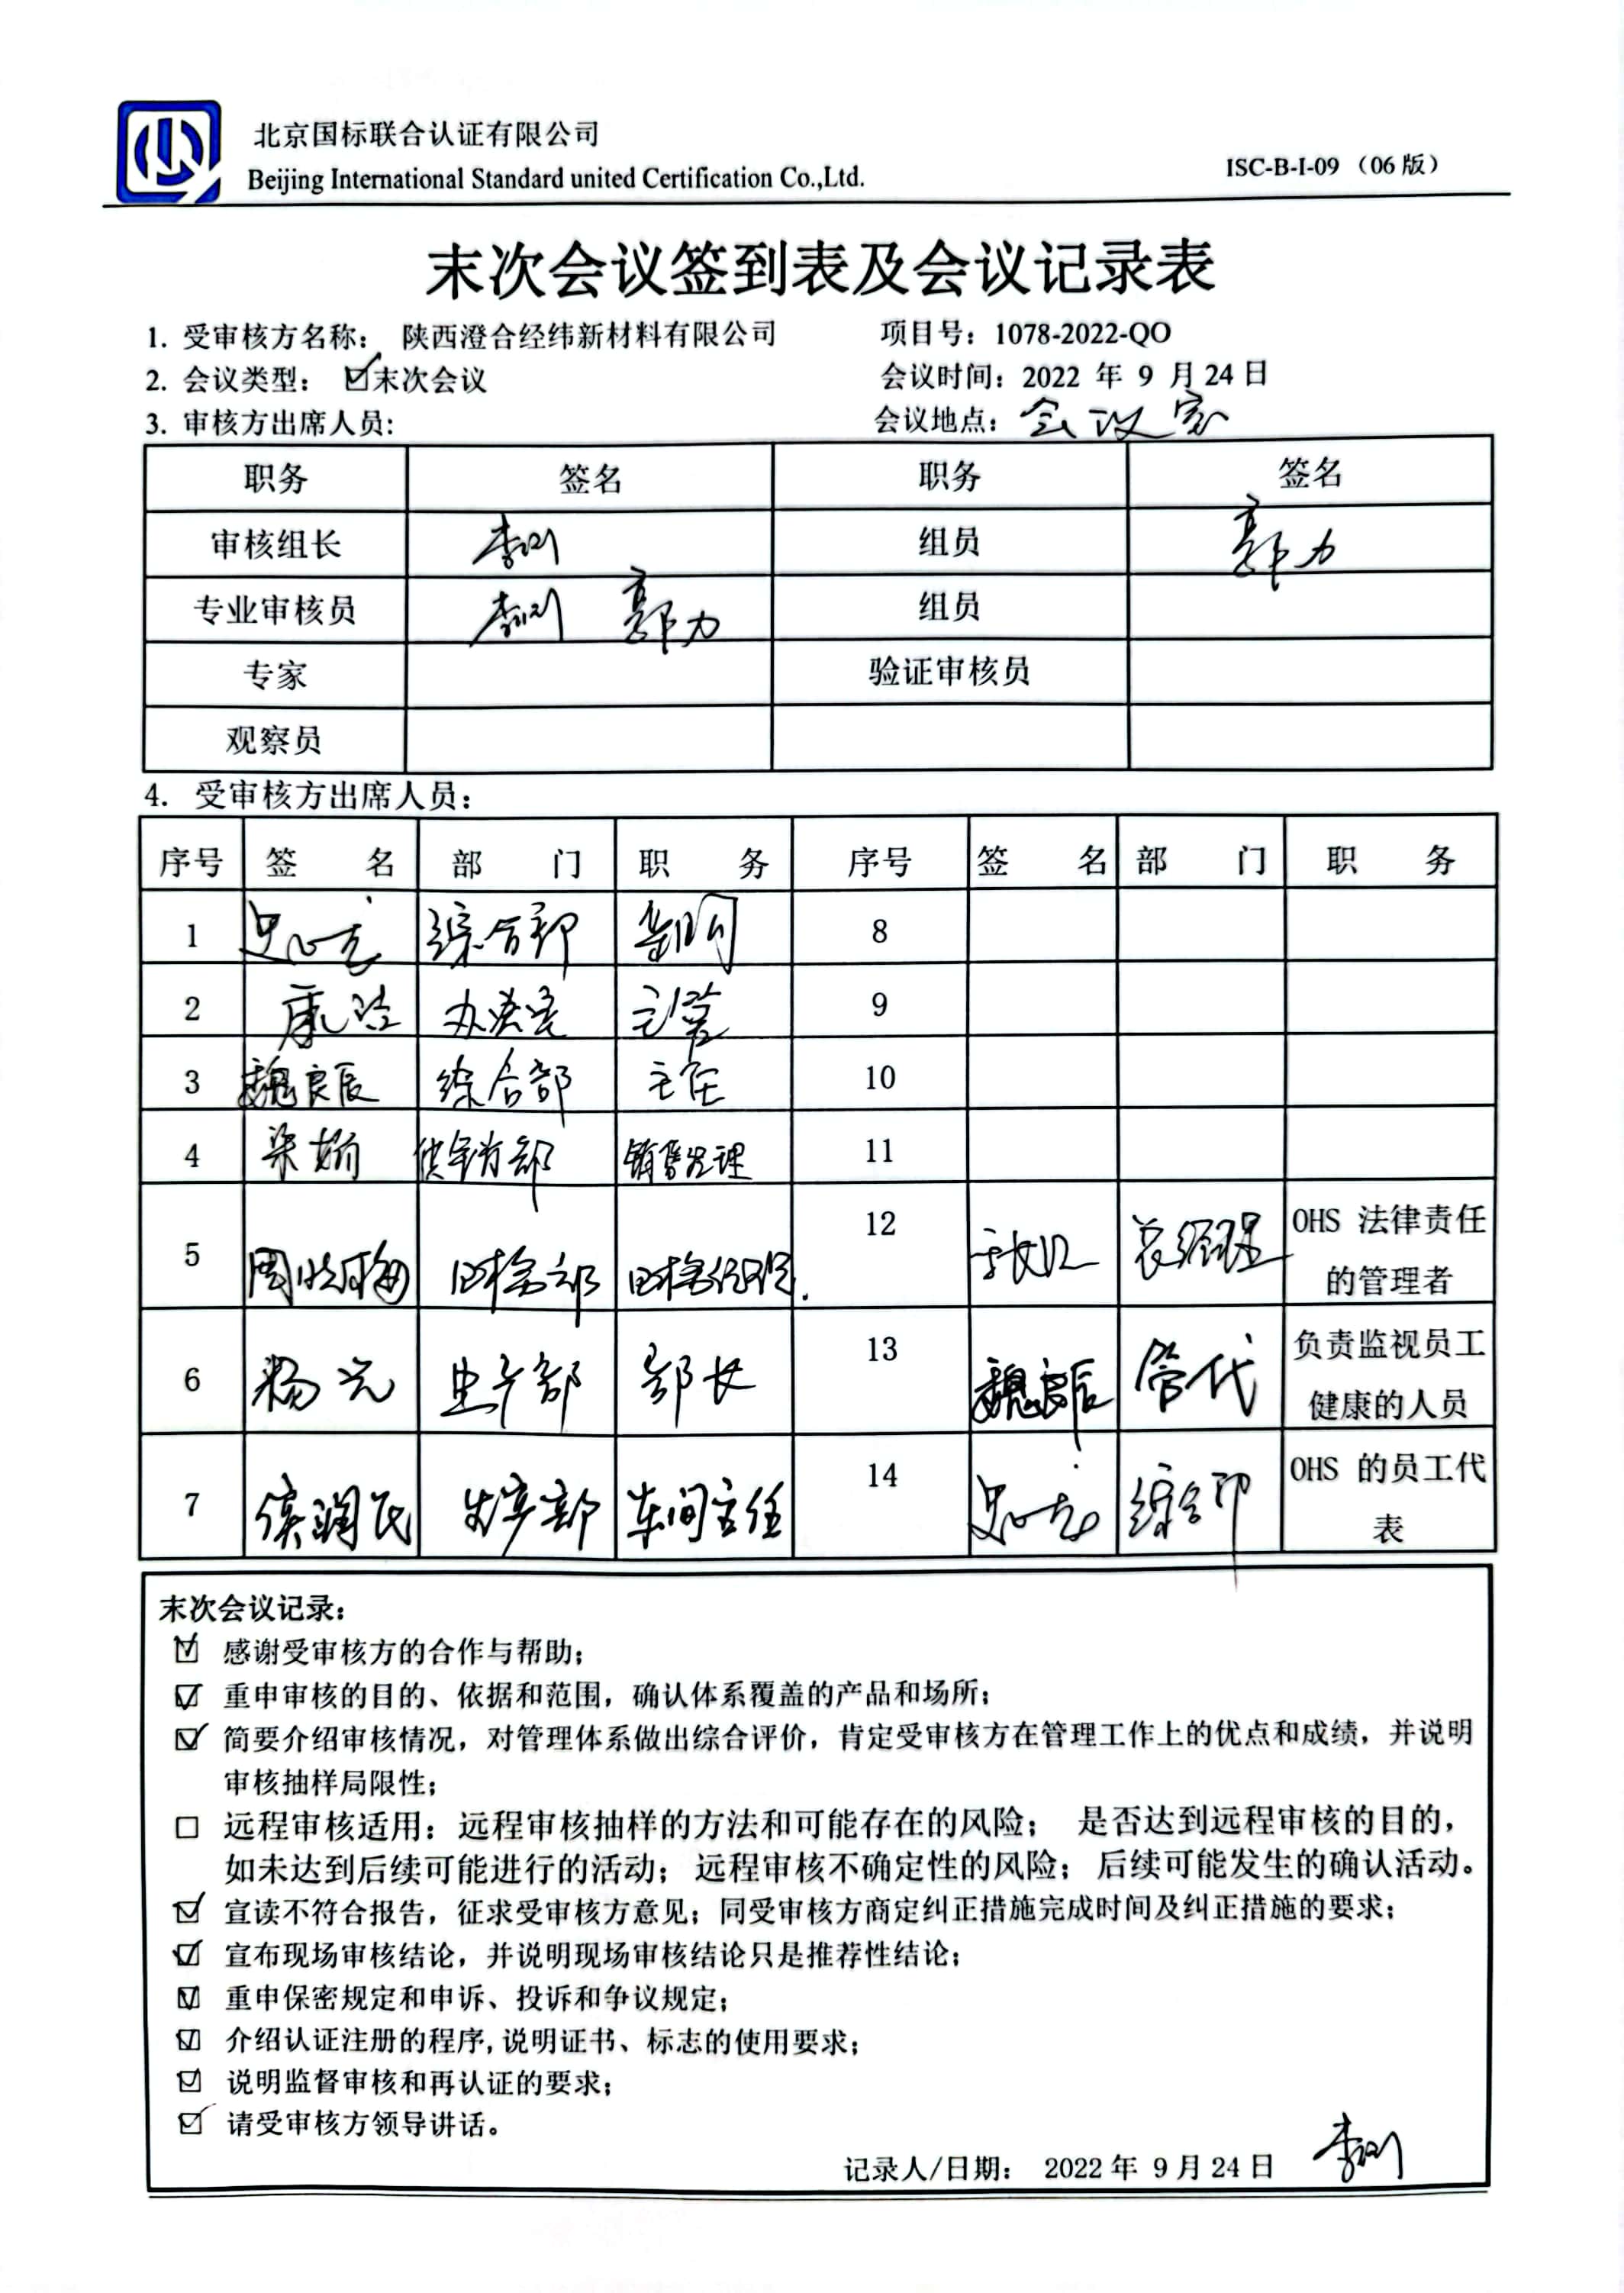 北京国标联合认证有限公司
Beijing International Standard united Certification Co.,Ltd.
ISC-B-I-09 (06版)
末次会议签到表及会议记录表
1. 受审核方名称: 陕西澄合经纬新材料有限公司 项目号: 1078-2022-QO
2. 会议类型: ☑末次会议 会议时间: 2022 年 9 月 24 日
3. 审核方出席人员: 会议地点: 会议室
职务 签名 职务 签名
审核组长 组员 郭力
专业审核员 郭力 组员
专家 验证审核员
观察员
4. 受审核方出席人员:
序号 签 名 部 门 职 务 序号 签 名 部 门 职 务
1 综合部 8
2 康洁 办公室 主管 9
3 魏良辰 综合部 主任 10
4 供销部 销售经理 11
5 质检部 12 总经理 OHS 法律责任
的管理者
6 杨光 生产部 部长 13 魏良辰 管代 负责监视员工
健康的人员
7 侯润民 生产部 车间主任 14 综合部 OHS 的员工代
表
末次会议记录:
☑ 感谢受审核方的合作与帮助;
☑ 重申审核的目的、依据和范围, 确认体系覆盖的产品和场所;
☑ 简要介绍审核情况, 对管理体系做出综合评价, 肯定受审核方在管理工作上的优点和成绩, 并说明
审核抽样局限性;
□ 远程审核适用: 远程审核抽样的方法和可能存在的风险; 是否达到远程审核的目的,
如未达到后续可能进行的活动; 远程审核不确定性的风险; 后续可能发生的确认活动。
☑ 宣读不符合报告, 征求受审核方意见; 同受审核方商定纠正措施完成时间及纠正措施的要求;
☑ 宣布现场审核结论, 并说明现场审核结论只是推荐性结论;
☑ 重申保密规定和申诉、投诉和争议规定;
☑ 介绍认证注册的程序, 说明证书、标志的使用要求;
☑ 说明监督审核和再认证的要求;
☑ 请受审核方领导讲话。
记录人/日期: 2022 年 9 月 24 日